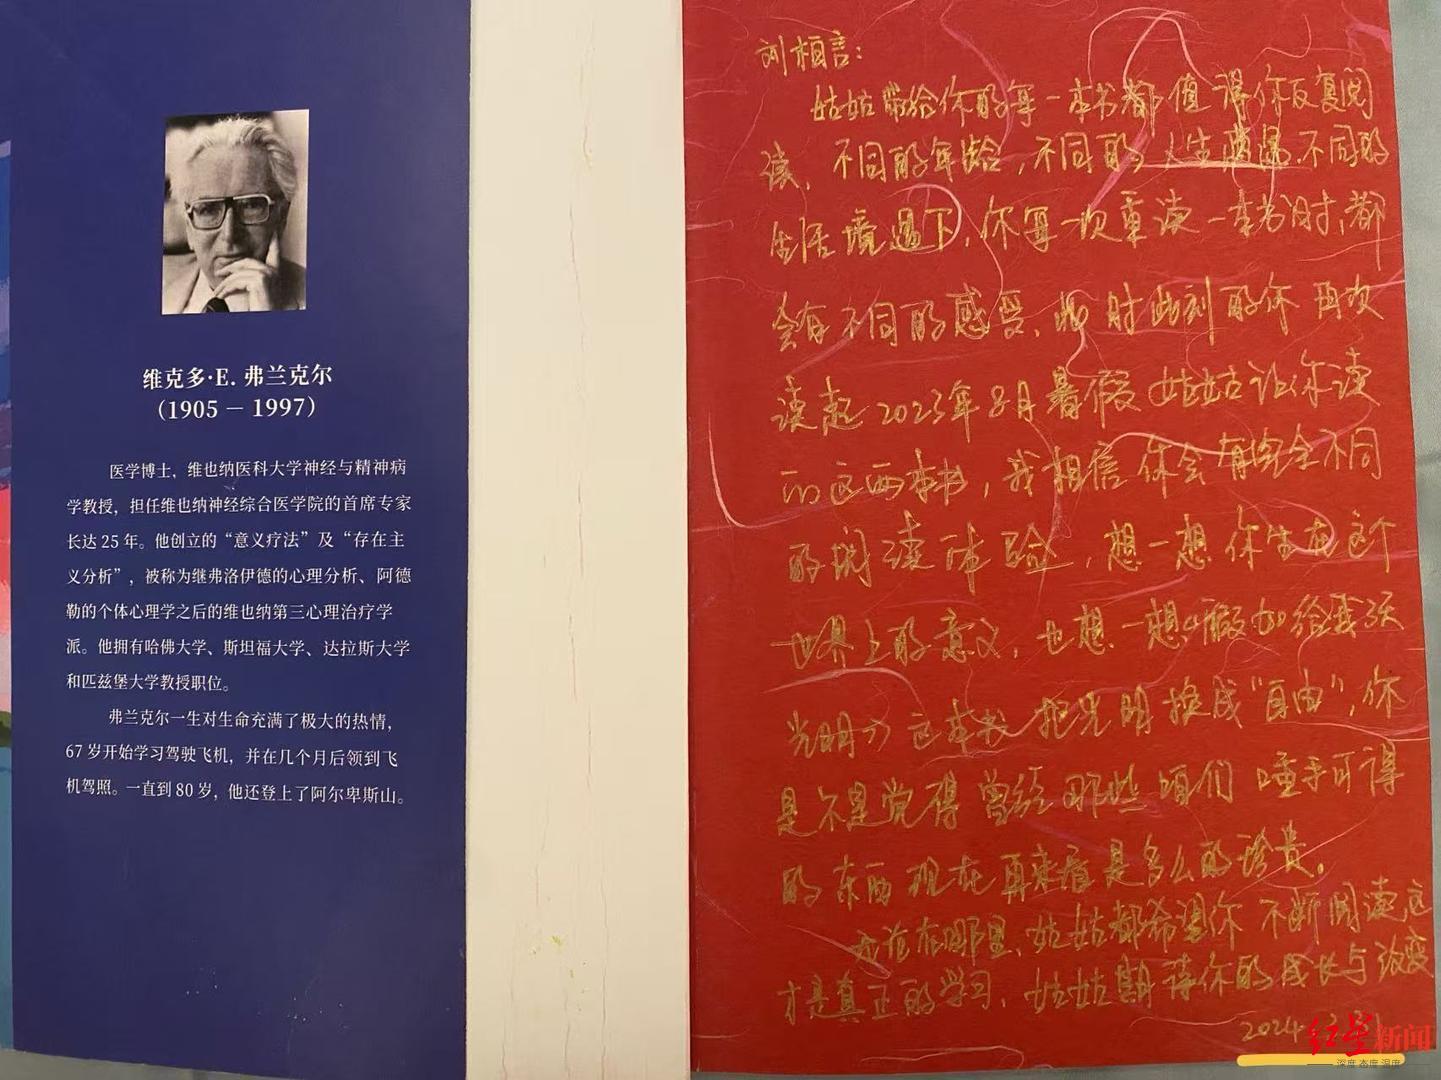 维克多·E. 弗兰克尔
（1905 — 1997）
医学博士，维也纳医科大学神经与精神病
学教授，担任维也纳神经综合医学院的首席专家
长达 25 年。他创立的“意义疗法”及“存在主
义分析”，被称为继弗洛伊德的心理分析、阿德
勒的个体心理学之后的维也纳第三心理治疗学
派。他拥有哈佛大学、斯坦福大学、达拉斯大学
和匹兹堡大学教授职位。
弗兰克尔一生对生命充满了极大的热情，
67 岁开始学习驾驶飞机，并在几个月后领到飞
机驾照。一直到 80 岁，他还登上了阿尔卑斯山。
刘相言：
姑姑带给你的每一本书都值得你反复阅
读，不同的年龄，不同的人生阶段，不同的
生活境遇下，你每一次重读一本书时，都
会有不同的感受，此时此刻的你再次
读起2023年8月暑假姑姑让你读
的这两本书，我相信你会有完全不同
的阅读体验，想一想你生在这个
世界上的意义，也想一想《假如给我三天
光明》这本书把光明换成“自由”，你
是不是觉得曾经那些咱们唾手可得
的东西现在再来看是多么的珍贵。
无论在哪里，姑姑都希望你不断阅读这
才是真正的学习，姑姑期待你的成长与改变
2024.
红星新闻
深度 态度 温度